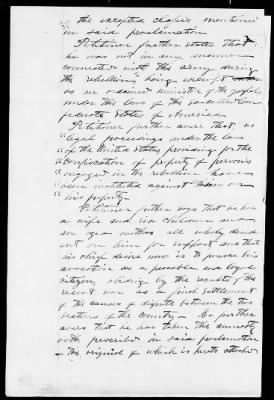 the excepted classes mentioned
in said proclamation
Petitioner further states that
he was not in any manner
connected with the army during
the rebellion being exempt
as an ordained minister of the gospel
under the laws of the so called con
federate States of America
Petitioner further avers that no
legal proceedings under the laws
of the United States providing for the
confiscation of property of persons
engaged in the rebellion have
been instituted against him or
his property
Petitioner further says that he has
a wife and children and
an aged mother all wholly depend
ent on him for support and that
his chief desire now is to pursue his
avocation as a peaceable and loyal
citizen, abiding by the results of the
recent war as a final settlement
of the causes of dispute between the two
sections of the country – he further
avers that he has taken the amnesty
oath prescribed in said proclamation
– the original of which is hereto attached